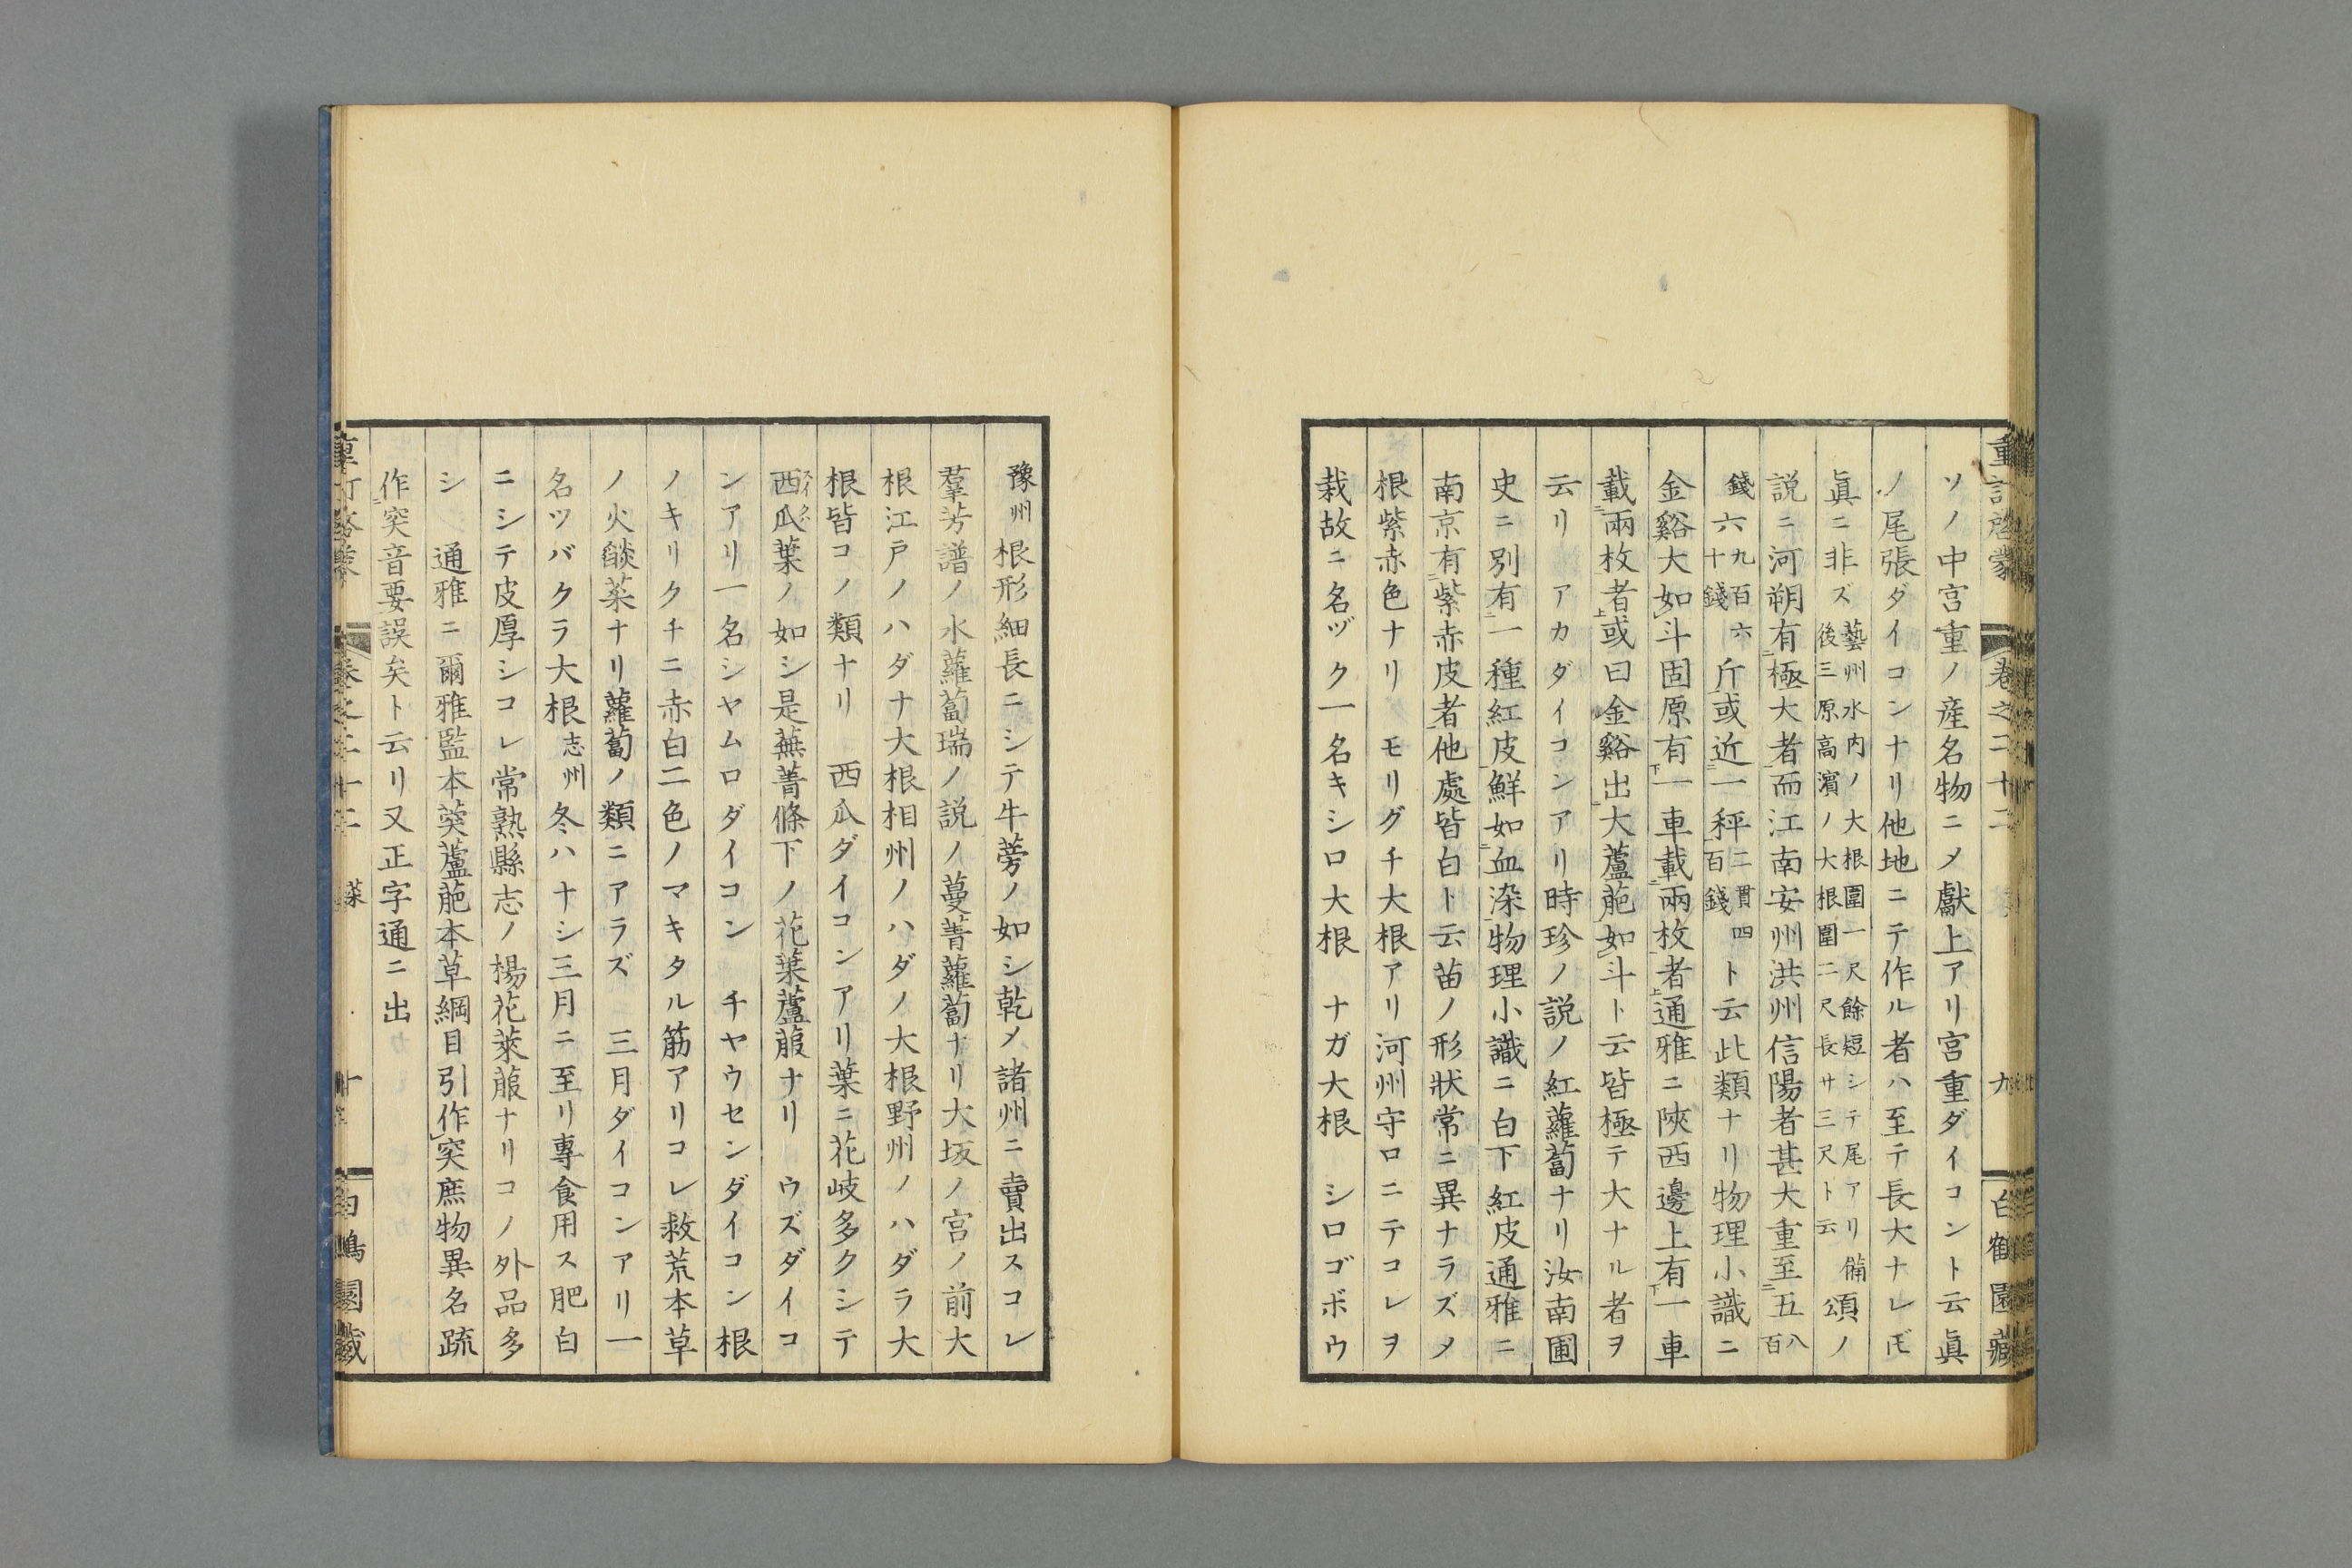 ソノ中宮重ノ産名物ニメ獻上アリ宮重ダイコント云眞
ノ尾張ダイコンナリ他地ニテ作ル者ハ至テ長大ナレ𪜈
眞ニ非ズ藝州水内ノ大根圍一尺餘短シテ尾アリ備後三原高濱ノ大根圍二尺長サ三尺ト云頌ノ
説ニ河朔有極大者而江南安州洪州信陽者甚大重至五八百
錢六九百六十錢斤或近一秤二貫四百錢ト云此類ナリ物理小識ニ
金谿大如斗固原有一車載兩枚者通雅ニ陝西邊上有一車
載兩枚者或曰金谿出大蘆萉如斗ト云皆極テ大ナル者ヲ
云リ　アカダイコンアリ時珍ノ説ノ紅蘿蔔ナリ汝南圃
史ニ別有一種紅皮鮮如血染物理小識ニ白下紅皮通雅ニ
南京有紫赤皮者他處皆白ト云苗ノ形狀常ニ異ナラズメ
根紫赤色ナリ　モリグチ大根アリ河州守口ニテコレヲ
栽故ニ名ヅク一名キシロ大根　ナガ大根　シロゴボウ
重訂啓蒙　卷之二十二　九　白鶴園藏
豫州根形細長ニシテ牛蒡ノ如シ乾メ諸州ニ賣出スコレ
羣芳譜ノ水蘿蔔瑞ノ説ノ蔓菁蘿蔔ナリ大坂ノ宮ノ前大
根江戸ノハダナ大根相州ノハダノ大根野州ノハダラ大
根皆コノ類ナリ　西瓜ダイコンアリ葉ニ花岐多クシテ
西瓜葉ノ如シ是蕪菁條下ノ花葉蘆菔ナリ　ウズダイコ
ンアリ一名シヤムロダイコン　チヤウセンダイコン根
ノキリクチニ赤白二色ノマキタル筋アリコレ救荒本草
ノ火燄菜ナリ蘿蔔ノ類ニアラズ　三月ダイコンアリ一
名ツバクラ大根志州冬ハナシ三月ニ至リ專食用ス肥白
ニシテ皮厚シコレ常熟縣志ノ楊花萊菔ナリコノ外品多
シ　通雅ニ爾雅監本葖蘆萉本草綱目引作突庶物異名疏
作突音要誤矣ト云リ又正字通ニ出
卷之二十二　菜　十